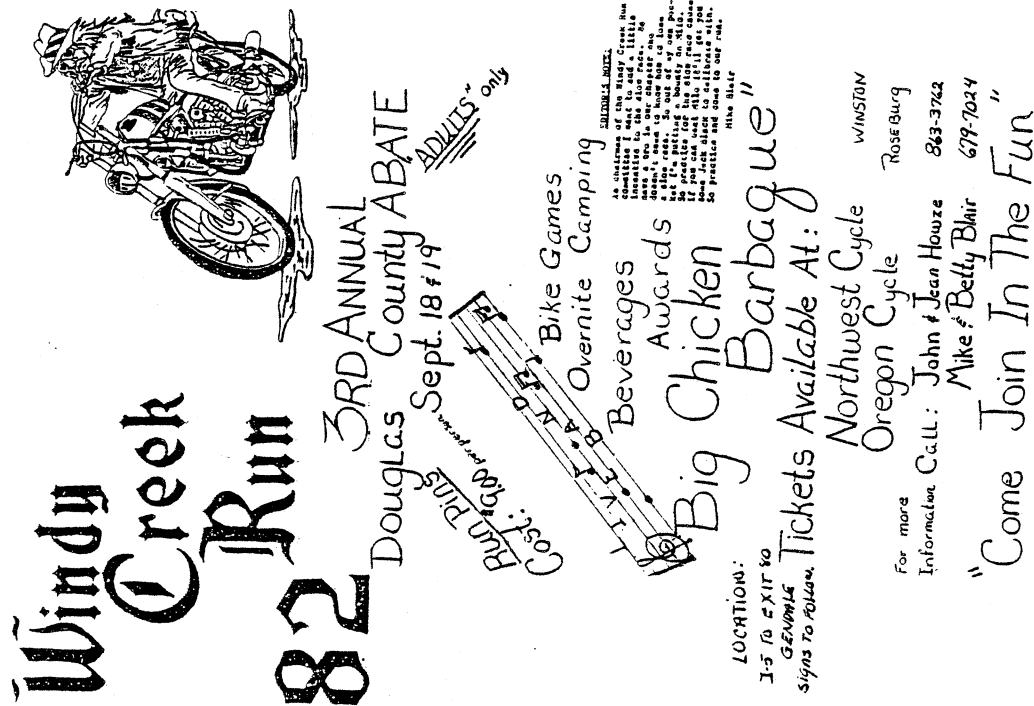 Windy
Creek
Run
82
3RD ANNUAL
Douglas County ABATE
Sept. 18 & 19
"ADULTS" only
Run Pins
Cost: $9.00 per person
LIVE BAND
Bike Games
Overnite Camping
Beverages
Awards
EDITOR'S NOTE:
As chairman of the Windy Creek Run
committee I want to add a little
incentive to the sloe race. We
have a bro in our chapter who
doesn't seem to know how to lose
a sloe race. So out of my own poc-
ket I'm putting a bounty on Milo.
So practice for the sloe race cause
if you can beat Milo it'll get you
some Jack Black to with.
So practice and come to our run.
Mike Blair
"Big Chicken
Barbaque"
LOCATION:
I-5 TO EXIT 80
GENDALE
SIGNS TO FOLLOW.
Tickets Available At:
Northwest Cycle WINSTON
Oregon Cycle RoseBurg
For more
Information Call: John & Jean Howze 863-3762
Mike & Betty Blair 679-7024
"Come Join In The Fun"